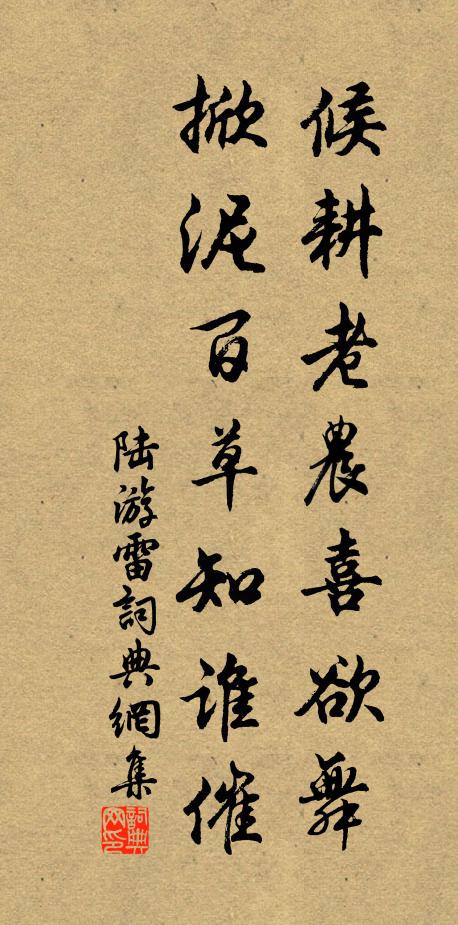 候耕老農喜欲舞
掀泥百草知誰催
陸游雷詞典網集
詞典網印